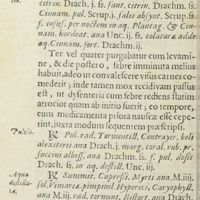 citrin. Drach. j. ß. sant. citrin. Drachm. ß.
Cinnam. pul. Scrup. j. salis absynt. Scrup. ß.
f. infus. per noctem in aq. Plantag. & Cin-
nam. hordeat. ana Unc. ij. ß. colaturæ adde
aq. Cinnam. fort. Drachm. ij.
Ter vel quater purgabatur cum levami-
ne, & die postero, febre imminuta melius
habuit, adeo ut convalescere visus carnes co-
mederit; inde tamen mox recidivam passus
est, ut subsequente nocte febris redeuns statim
atrocior quam ab initio fuerit; eo tempore,
cum medicamenta priora nausea esse cepe-
rint, juxta modum sequentem præscripsi.
Pulvis.
℞ Pul. rad. Tormentill. Contrayer. boli
alexiterii ana Drach j. marg. coral. rub. pr.
succini albiss. ana Drachm. ß. f. pul. dosis
Drachm. ß. in aq. destill. Unc. iij.
Aqua
destilla-
ta.
℞ Summit. Cupressi, Myrti ana M. iiij.
fol. Ulmariæ, pimpinel. Hyperici, Caryophyll.
ana M. iij. rad. torment. Bistort.